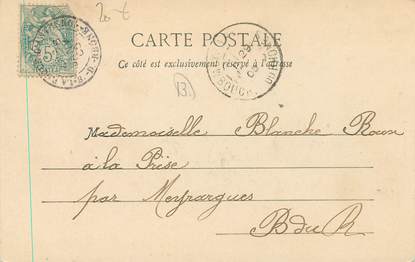 20 €
CARTE POSTALE
Ce côté est exclusivement réservé à l'adresse
13.
Mademoiselle Blanche Roun
à la Prise
par Meyrargues
B du R